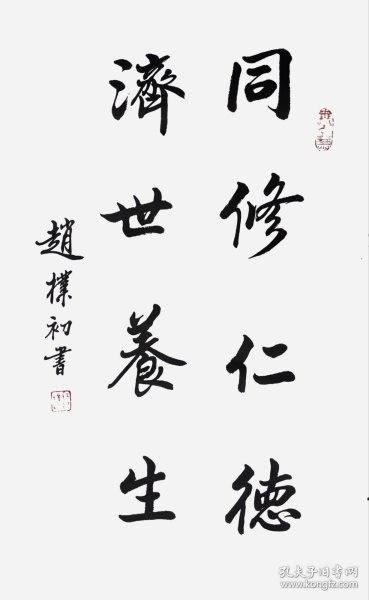 同修仁德
濟世養生
趙樸初書
孔夫子旧书网
www.kongfz.com